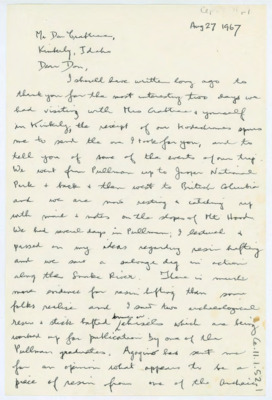 Aug 27 1967
Mr. Don Crabtree,
Kimberly, Idaho
Dear Don,
I should have written long ago to
thank you for the most interesting two days we
had visiting with Mrs Crabtree & yourself
in Kimberly, the receipt of our Kodachromes spurs
me to send the one I took for you, and to
tell you of some of the events of our trip.
We went from Pullman up to Jasper National
Park & back & then went to British Columbia
and we are now resting & catching up
with mail & notes on the slopes of Mt Hood.
We had several days in Pullman, I lectured &
passed on my ideas regarding resin hafting
and we saw a salvage dig in action
along the Snake River. There is much
more evidence for resin hafting than some
folks realise and I saw two archaeological
resin & stick hafted which are being
worked up for publication by one of the
Pullman graduates. has sent me
for an opinion what appears to be a
piece of resin from one of the